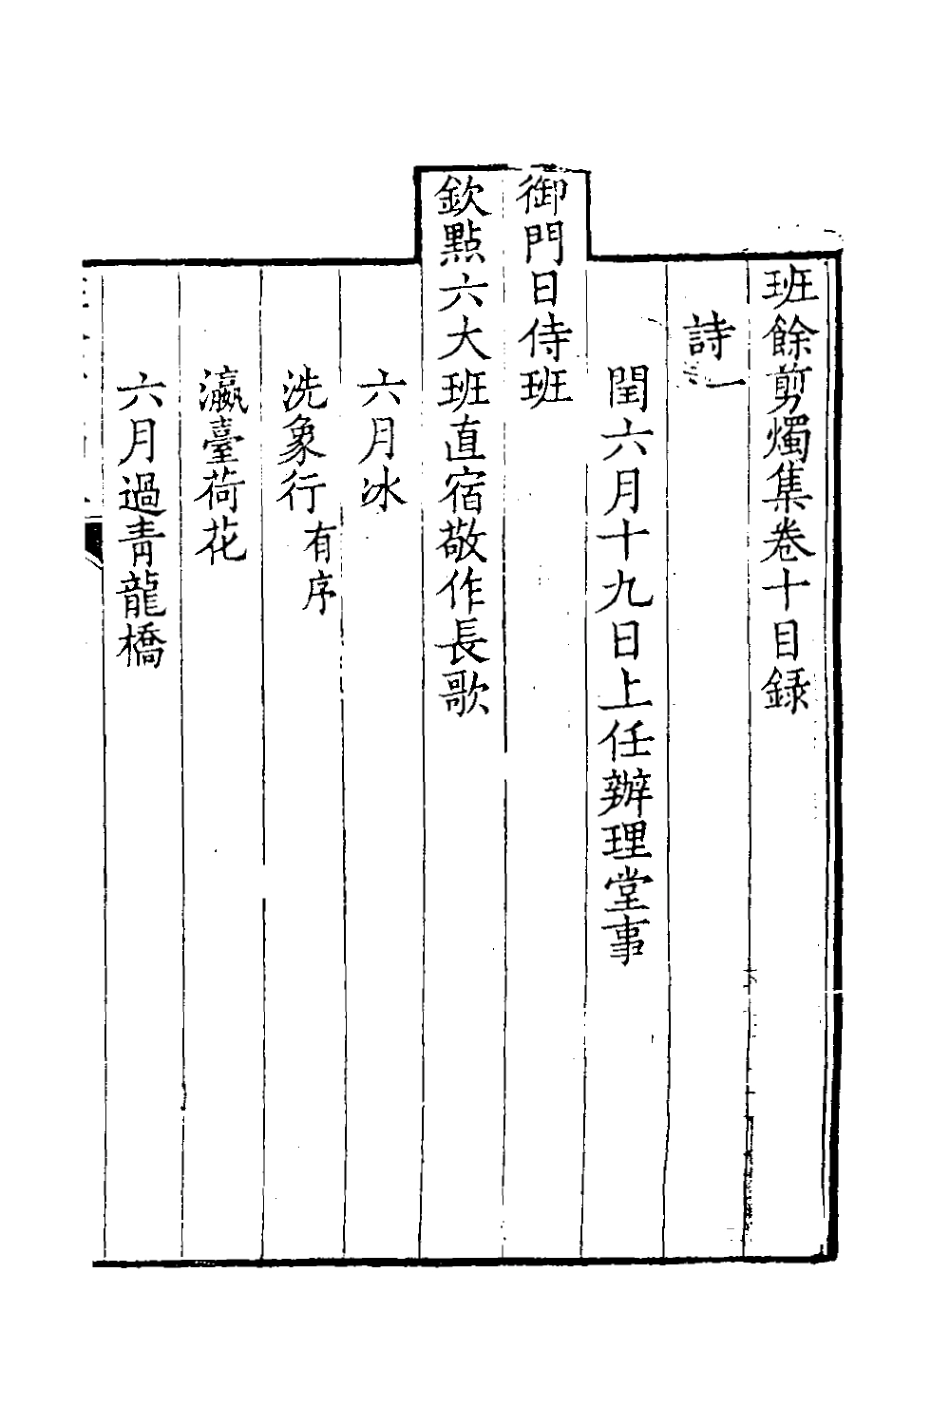 班餘剪燭集卷十目録
詩一
閏六月十九日上任辦理堂事
御門日侍班
欽點六大班直宿敬作長歌
六月冰
洗象行有序
瀛臺荷花
六月過青龍橋